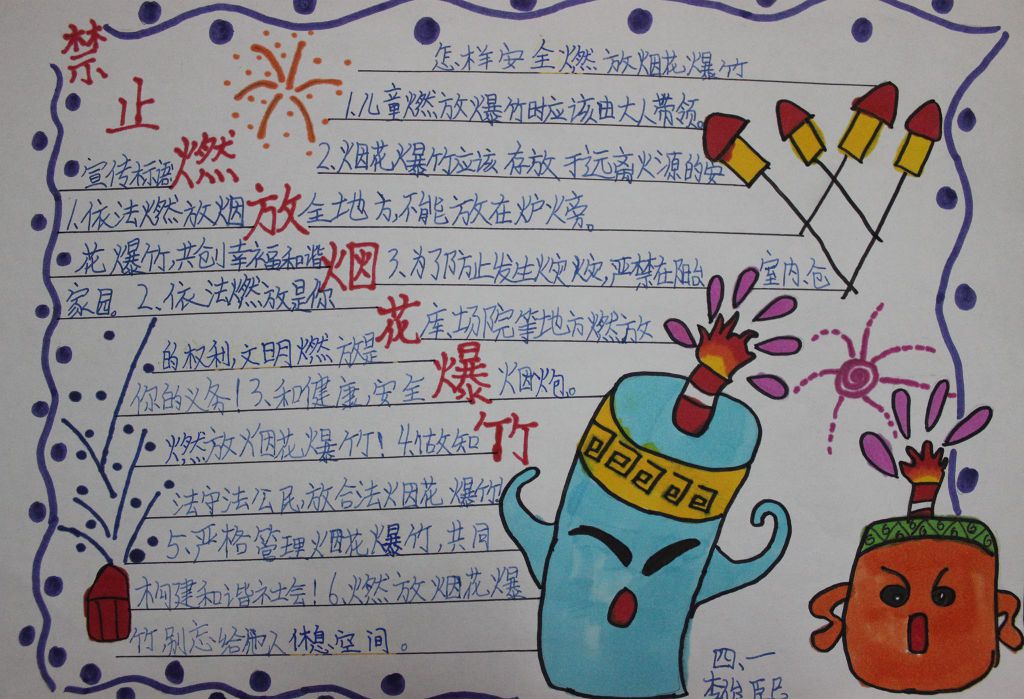 禁止燃放烟花爆竹
怎样安全燃放烟花爆竹
1.儿童燃放爆竹时应该由大人带领。
2.烟花爆竹应该存放于远离火源的安
全地方,不能放在炉火旁。
3.为了防止发生火灾,严禁在阳台 室内、仓
库场院等地方燃放
烟炮。
宣传标语
1.依法燃放烟
花爆竹,共创幸福和谐
家园。2.依法燃放是你
的权利,文明燃放是
你的义务!3.和健康,安全
燃放烟花爆竹!4.做知
法守法公民,放合法烟花爆竹!
5.严格管理烟花爆竹,共同
构建和谐社会!6.燃放烟花爆
竹别忘给他人休息空间。
四、一